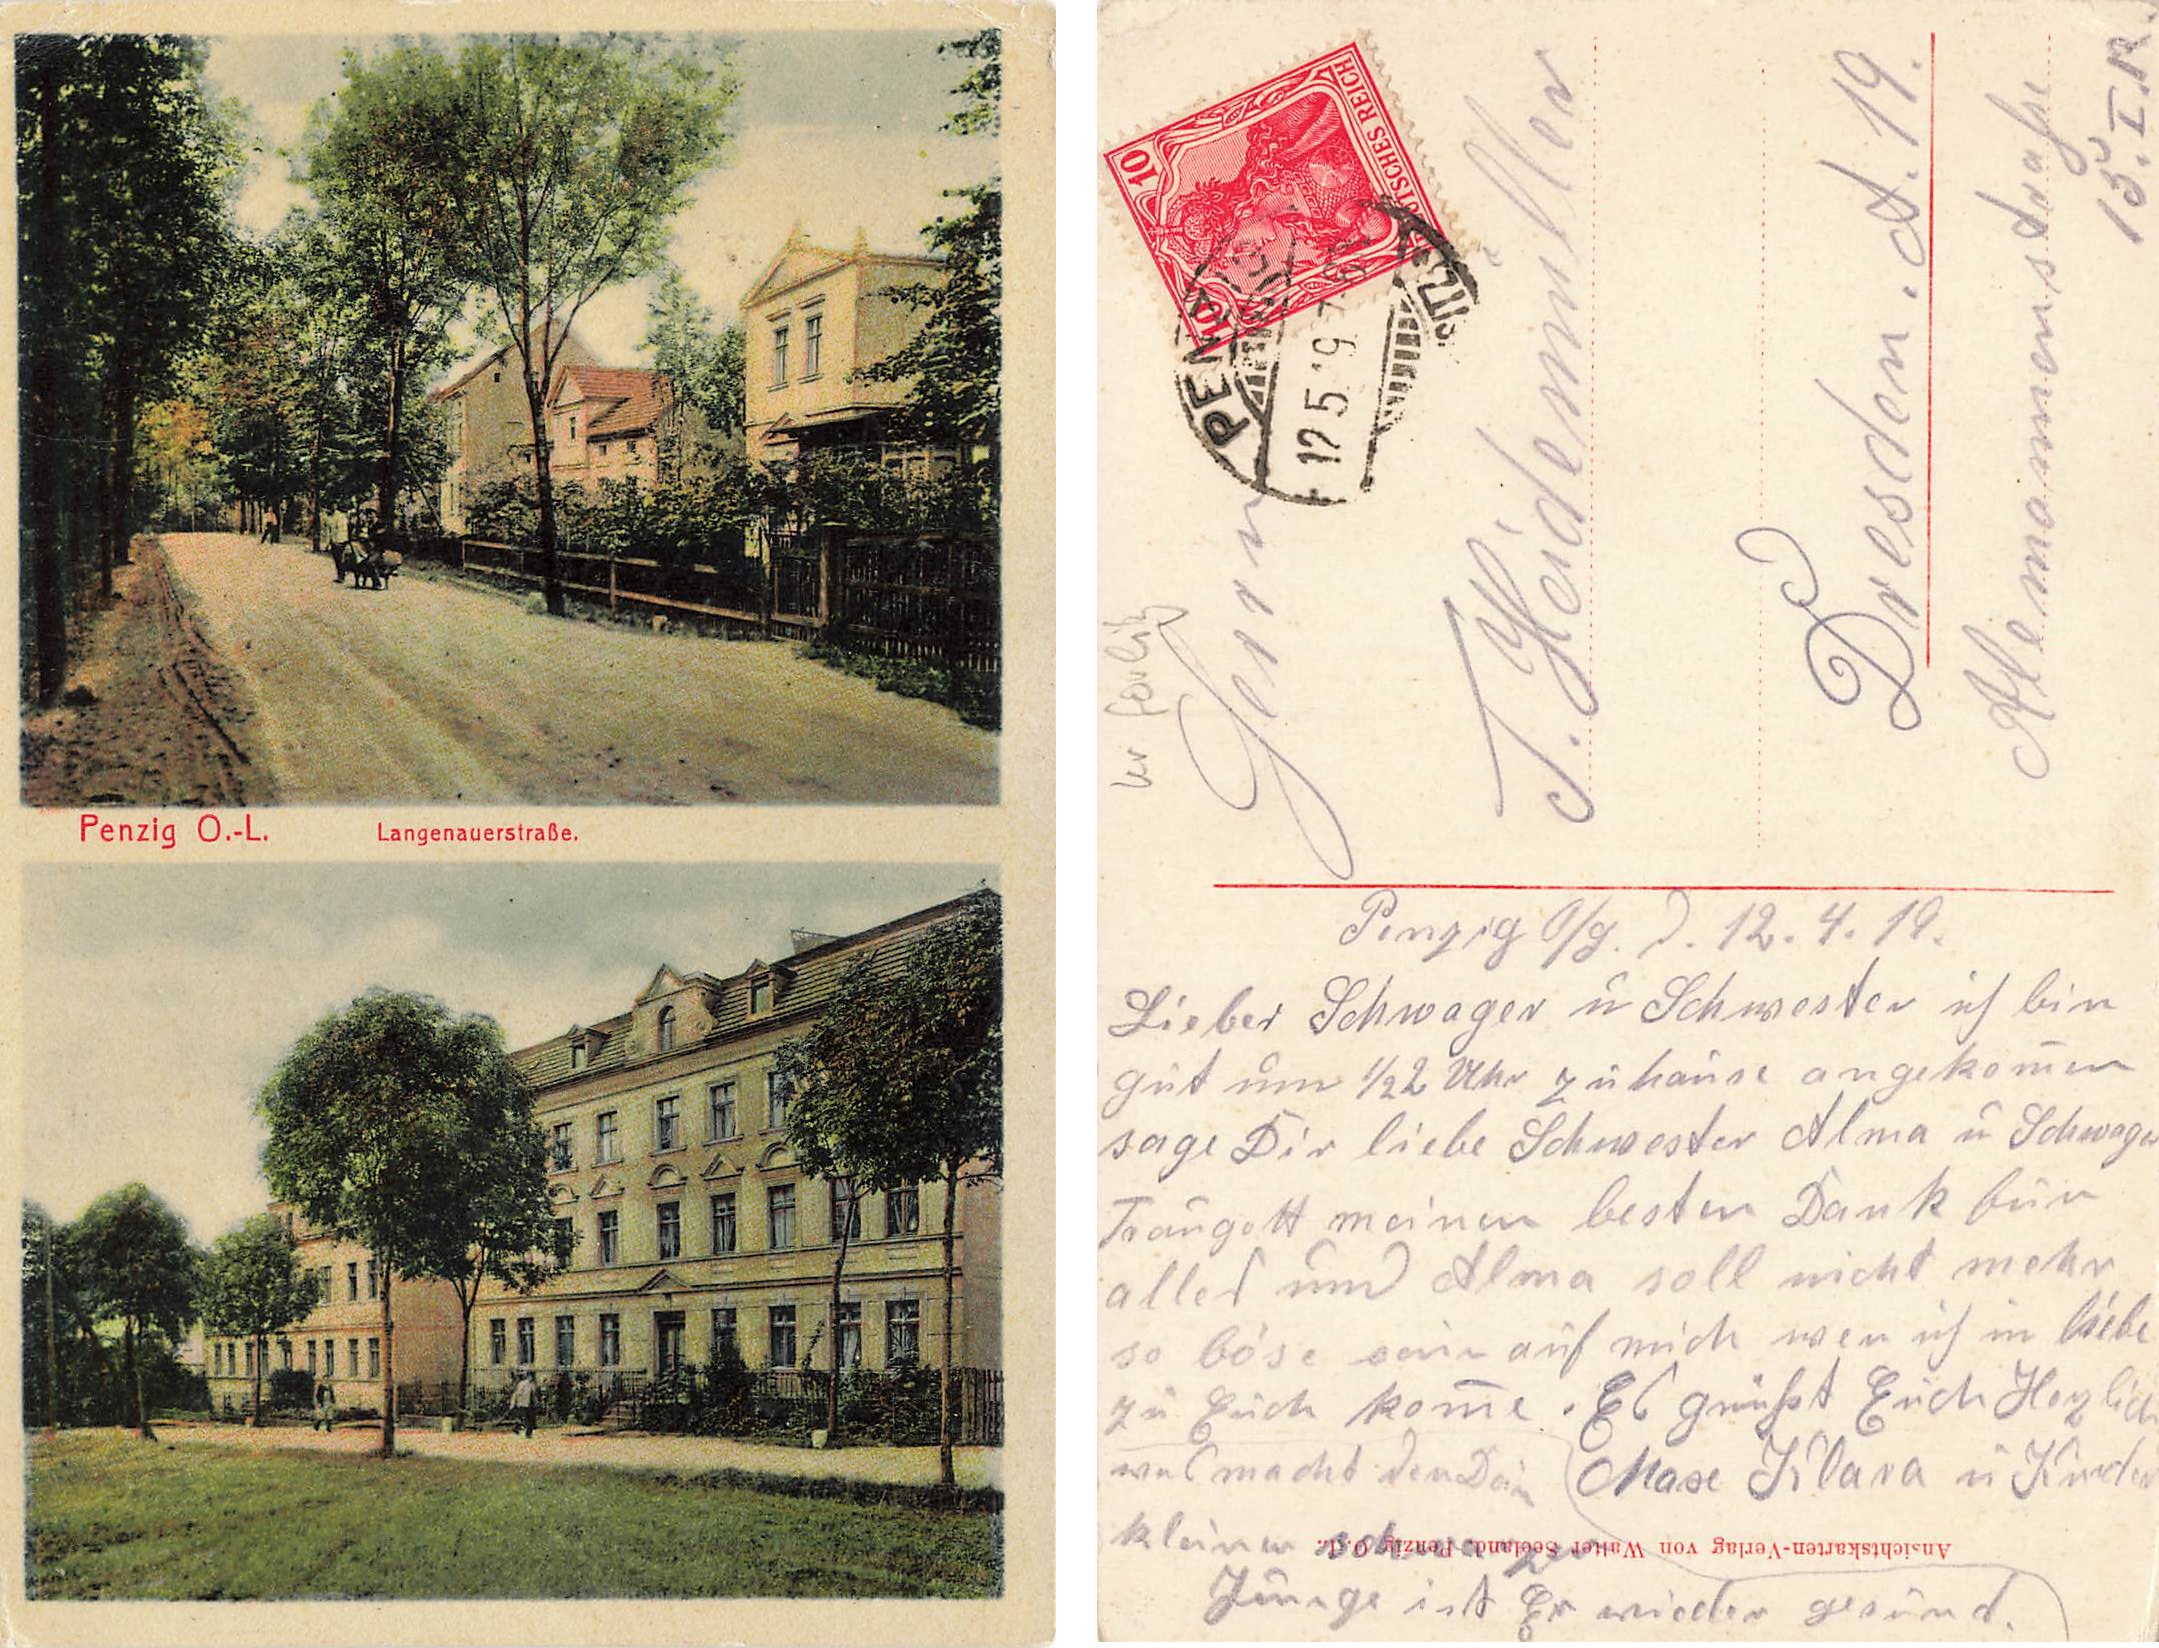 Penzig O.-L. Langenauerstraße.
DEUTSCHES REICH
10 10
PENZIG
12 5 19 7-8
Herrn
T. Heidemüller
Dresden. A. 19.
Alemannenstraße
15. I. R.
Penzig O/g. d. 12. 4. 19.
Lieber Schwager ü Schwester ich bin
gut um 1/22 Uhr zuhause angekom̄en
sage Dir liebe Schwester Alma ü Schwager
Traugott meinen besten Dank für
alles und Alma soll nicht mehr
so böse sein auf mich wen ich in liebe
zu Euch kom̄e. Es grüßt Euch Herzlich
was macht den Dein Mase Klara ü Kinder
kleiner schwarzer
Junge ist Er wieder gesund.
Ansichtskarten-Verlag von Walter Seeland, Penzig O.-L.